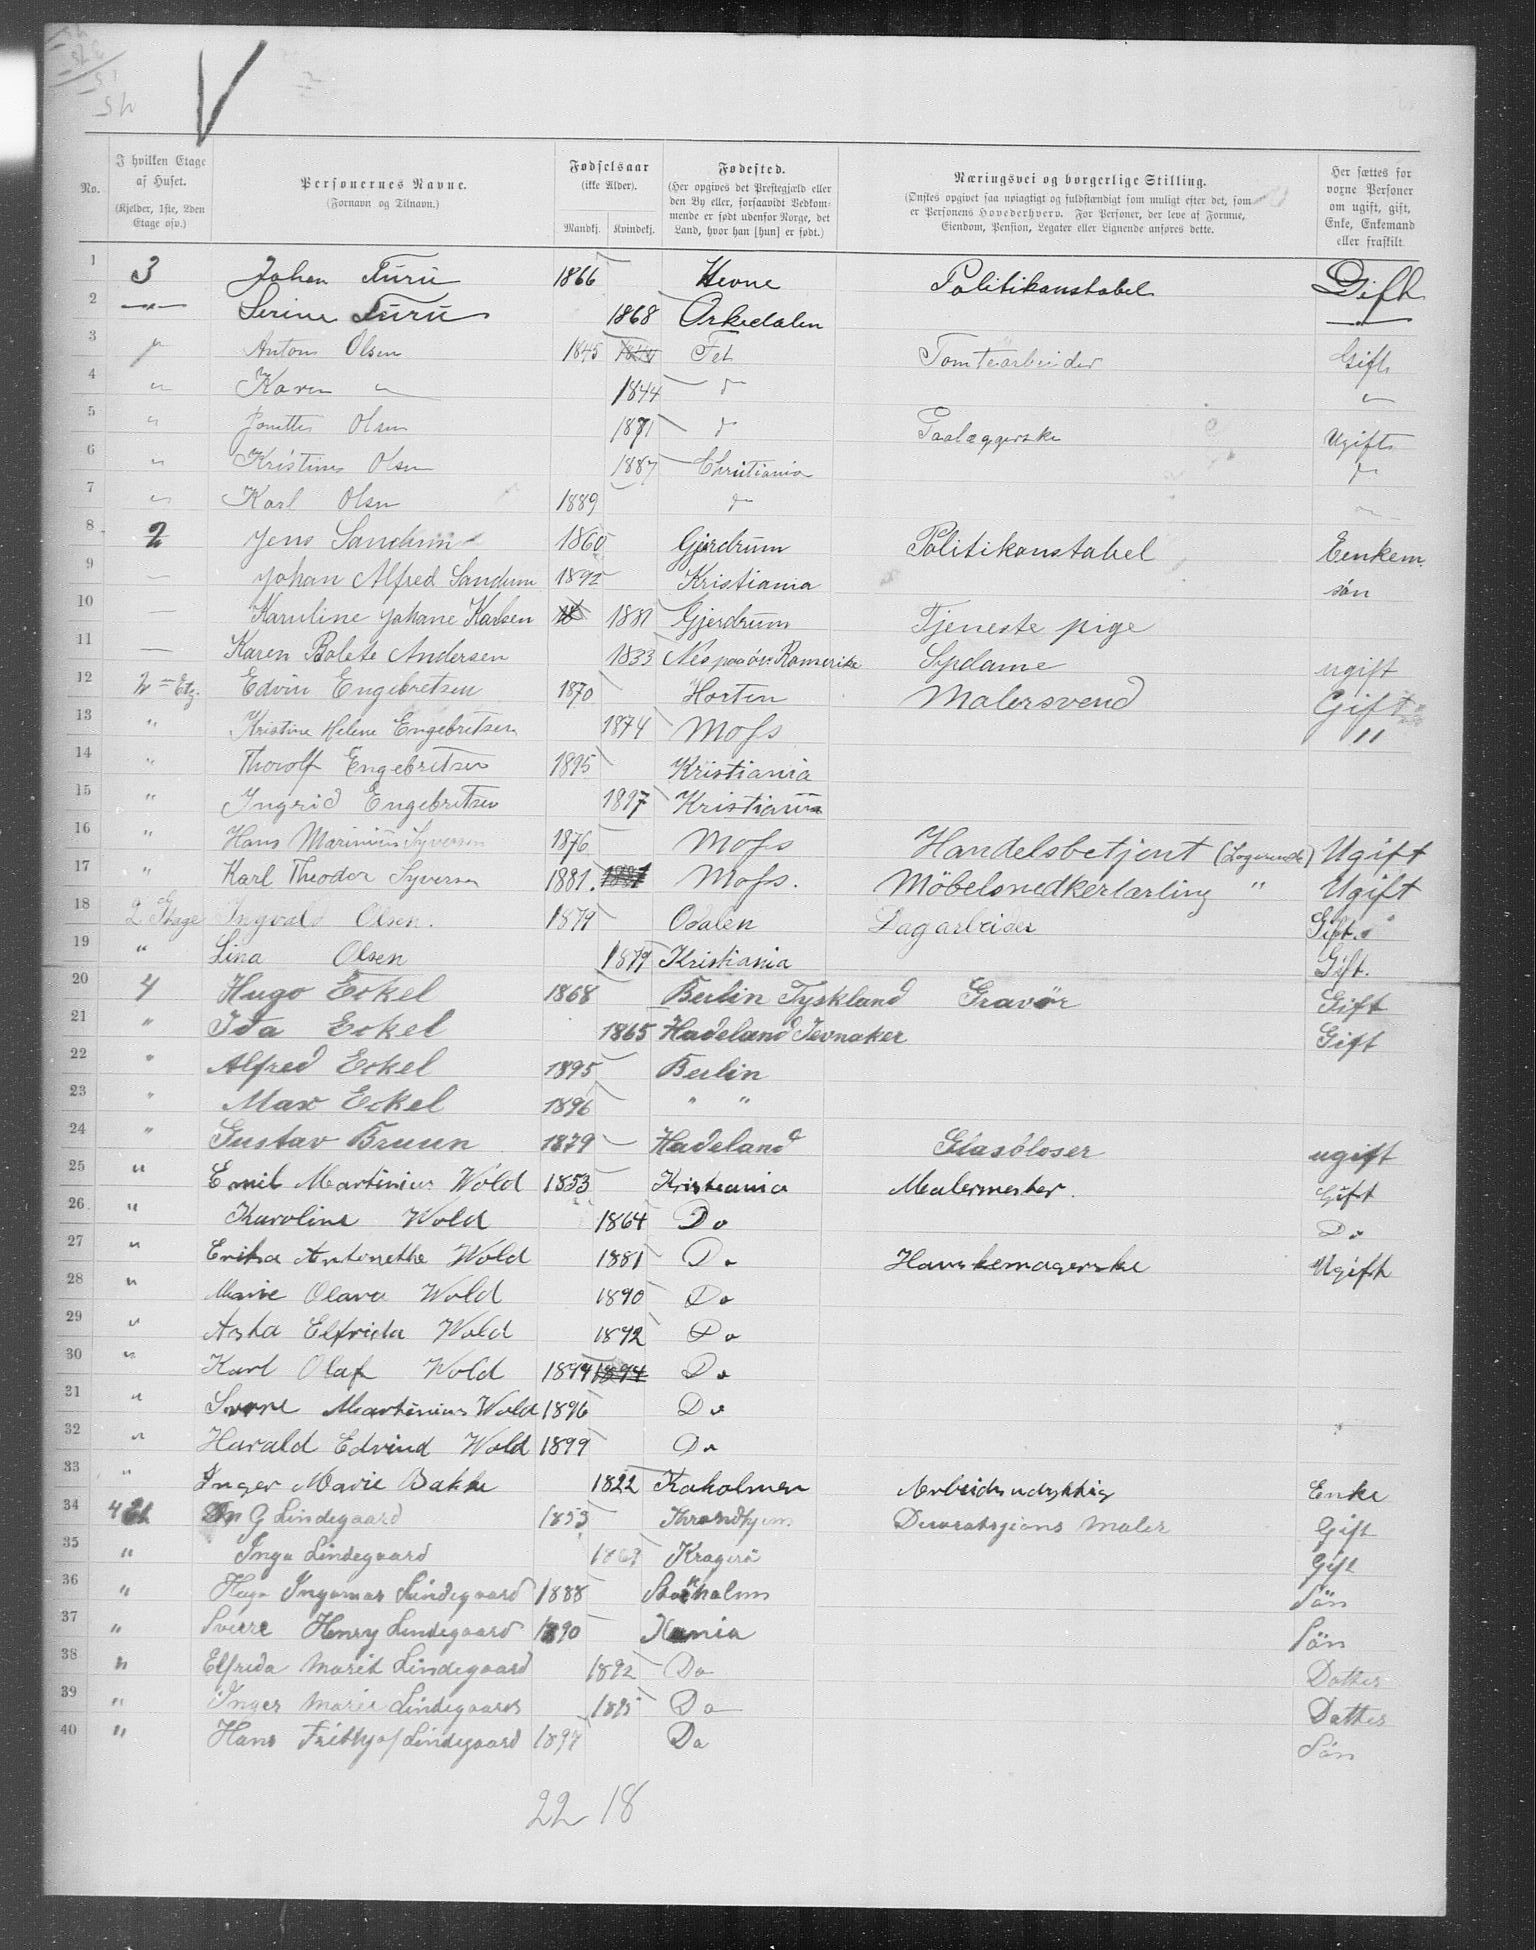 No.
I hvilken Etage af Huset. (Kjelder, 1ste, 2den Etage osv.)
Personernes Navne. (Fornavn og Tilnavn.)
Fødselsaar (ikke Alder). Mandkj. Kvindekj.
Fødested. (Her opgives det Prestegjæld eller den By eller, forsaavidt Vedkommende er født udenfor Norge, det Land, hvor han [hun] er født.)
Næringsvei og borgerlige Stilling. (Ønskes opgivet saa nøiagtigt og fuldstændigt som muligt efter det, som er Personens Hovederhverv. For Personer, der leve af Formue, Eiendom, Pension, Legater eller Lignende anføres dette.
Her sættes for voxne Personer om ugift, gift, Enke, Enkemand eller fraskilt
1 3 Johan Turu 1866 Hevne Politikonstabel Gift
2 — Serine Turu 1868 Orkedalen —
3 " Anton Olsen 1845 Fet Tomtearbeider Gift
4 " Karen " 1844 do "
5 " Jonette Olsen 1871 do Paalæggerske Ugift
6 " Kristine Olsen 1887 Christiania do
7 " Karl Olsen 1889 do "
8 2 Jens Sandum 1860 Gjerdrum Politikonstabel Eenkem.
9 — Johan Alfred Sandum 1892 Kristiania sön
10 — Karuline Johane Karlsen 1881 Gjerdrum Tjeneste pige
11 — Karen Bolete Andersen 1833 Nes paa öv. Romerike Sydame ugift
12 2den Etg. Edvin Engebretsen 1870 Horten Malersvend Gift
13 " Kristine Helene Engebritsen 1874 Moss "
14 " Thorolf Engebritsen 1895 Kristiania
15 " Ingrid Engebritsen 1897 Kristiania
16 " Hans Marinius Syversen 1876 Moss Handelsbetjent (Logerende) Ugift
17 " Karl Theodor Syversen 1881. Moss. Möbelsnedkerlærling " Ugift
18 2 Etage Ingvald Olsen. 1879 Odalen Dagarbeider Gift.
19 " Lina Olsen 1879 Kristiania Gift.
20 4 Hugo Eckel 1868 Berlin Tyskland Gravör Gift
21 " Ida Eckel 1865 Hadeland Jevnaker Gift
22 " Alfred Eckel 1895 Berlin
23 " Max Eckel 1896 " "
24 " Gustav Bruun 1879 Hadeland Glasblöser ugift
25 " Emil Martinius Wold 1853 Kristiania Malermester. Gift
26 " Karoline Wold 1864 Do Do
27 " Erika Antonethe Wold 1881 Do Hanskemagerske Ugift
28 " Marie Olava Wold 1890 Do
29 " Asta Elfrida Wold 1892 Do
30 " Karl Olaf Wold 1894 Do
31 " Sverre Martinius Wold 1896 Do
32 " Harald Edvind Wold 1899 Do
33 " Inger Marie Bakke 1822 Kaholmen Arbeidsudygtig Enke
34 4 Et G Lindegaard 1853 Throndhjem Decorationsmaler Gift
35 " Inga Lindegaard Kragerö Gift
36 " Hugo Ingomar Lindegaard 1888 Stockholm Sön
37 " Sverre Henry Lindegaard 1890 Kania Sön
38 " Elfrida Marit Lindegaard 1892 Do Datter
39 " Inger Marie Lindegaard 1895 Do Datter
40 " Hans Frithjof Lindegaard 1897 Do Sön
22 18